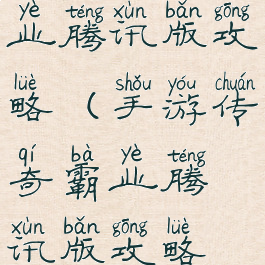 yè téng xùn bǎn gōng
业腾讯版攻
lüè shǒu yóu chuán
略(手游传
qí bà yè téng
奇霸业腾
xùn bǎn gōng lüè
讯版攻略